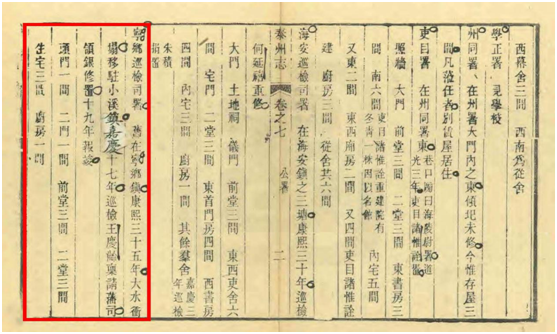 西幕舍三間　西南爲從舍
學正署　見學校
州同署　在州署大門內之東傾圮未修今惟存屋三
間凡蒞任者別賃屋居住
吏目署　在州同署東
大門　前堂三間　二堂三間　東書房三
間　南六間
內宅五間
又東二間　東西廂房二間　又四間東目諸惟詮
建　廚房三間　從舍共六間
海安巡檢司署　在海安鎮之三塘康熙三十年巡檢
何廷
重修
泰州志　卷之七　公署　二
大門　土地祠　儀門　前堂三間　東西吏舍六
間　宅門　二堂三間　東首門房四間　西書房
四間　內宅三間　廚房一間　其餘羣舍
嘉慶三年巡檢
朱積
捐酒
寧鄉巡檢司署　舊在寧鄉鎮康熙三十五年大水衝
塌移駐小溪鎮嘉慶十七年巡檢王慶
稟請藩司
領銀修署十九年報
頭門一間　二門一間　前堂三間　二堂三間
住宅三間　廚房一間